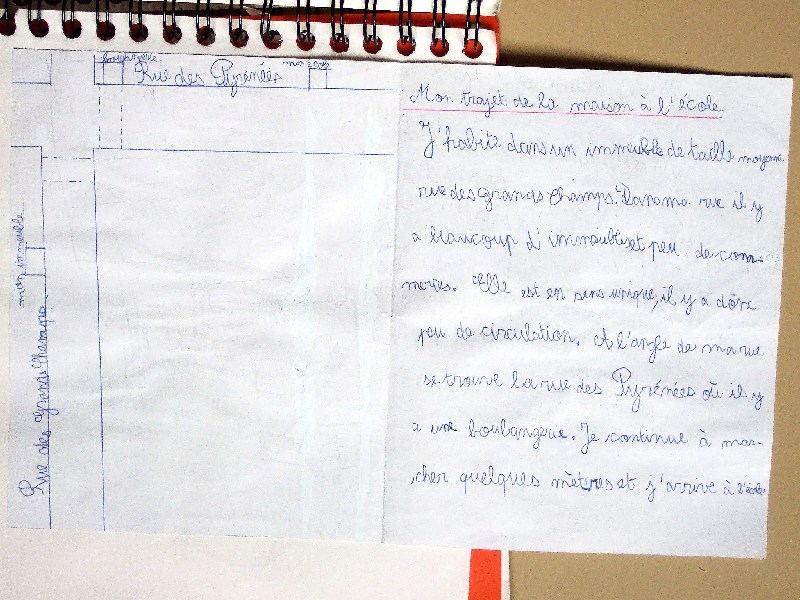 boulangerie
Rue des Pyrénées
mon école
mon immeuble
Rue des Grands Champs
Mon trajet de la maison à l'école
J'habite dans un immeuble de taille moyenne
rue des Grands Champs. Dans ma rue il y
a beaucoup d'immeubles et peu de com-
merces. Elle est en sens unique, il y a donc
peu de circulation. A l'angle de ma rue
se trouve la rue des Pyrénées où il y
a une boulangerie. Je continue à mar-
cher quelques mètres et j'arrive à l'école